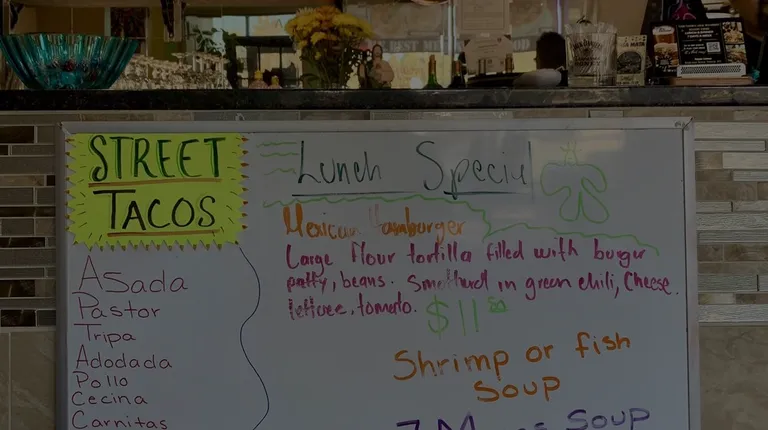 STREET
TACOS
Asada
Pastor
Tripa
Adodada
Pollo
Cecina
Carnitas
Lunch Special
Mexican Hamburger
Large flour tortilla filled with burger
patty, beans. Smothered in green chili, Cheese.
lettuce, tomato.
$11⁵⁰
Shrimp or fish
Soup
7 Mares Soup